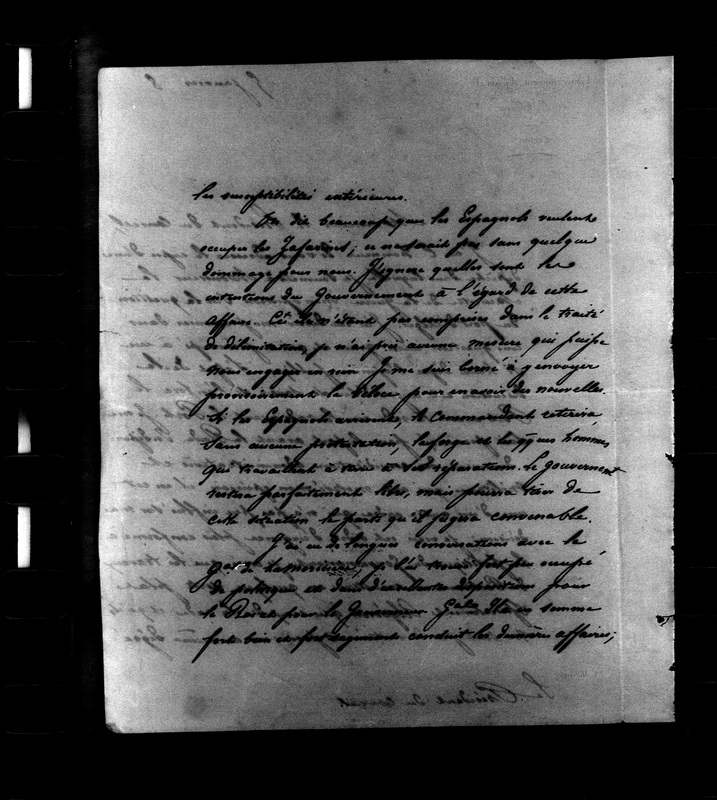 les susceptibilités extérieures.
On dit beaucoup que les Espagnols veulent
occuper les Zafarines; ce ne serait pas sans quelque
dommage pour nous. J'ignore quelles sont les
intentions du Gouvernement à l'égard de cette
affaire. Ces îles n'étant pas comprises dans le traité
de délimitation, je n'ai pris aucune mesure qui puisse
nous engager en rien. Je me suis borné à y envoyer
provisoirement le Véloce pour en avoir des nouvelles.
Si les Espagnols arrivent, le Commandant retirera,
sans aucune protestation, la forge et les qques hommes
qui travaillent à terre à ses réparations. Le gouvernement
restera parfaitement libre, mais pourra tirer de
cette situation le parti qu'il jugera convenable.
J'ai eu de longues conversations avec le
Gal de Lamoricière, je l'ai trouvé fort peu occupé
de politique et dans d'excellentes dispositions pour
le
pour le Gouverneur Gal. Il a en somme
fort bien et fort sagement conduit les dernières affaires;
Le Président du Conseil